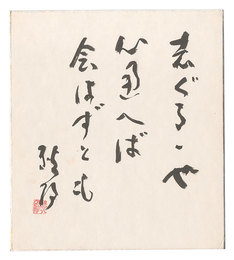 志ぐるゝや
心通へば
会はずとも